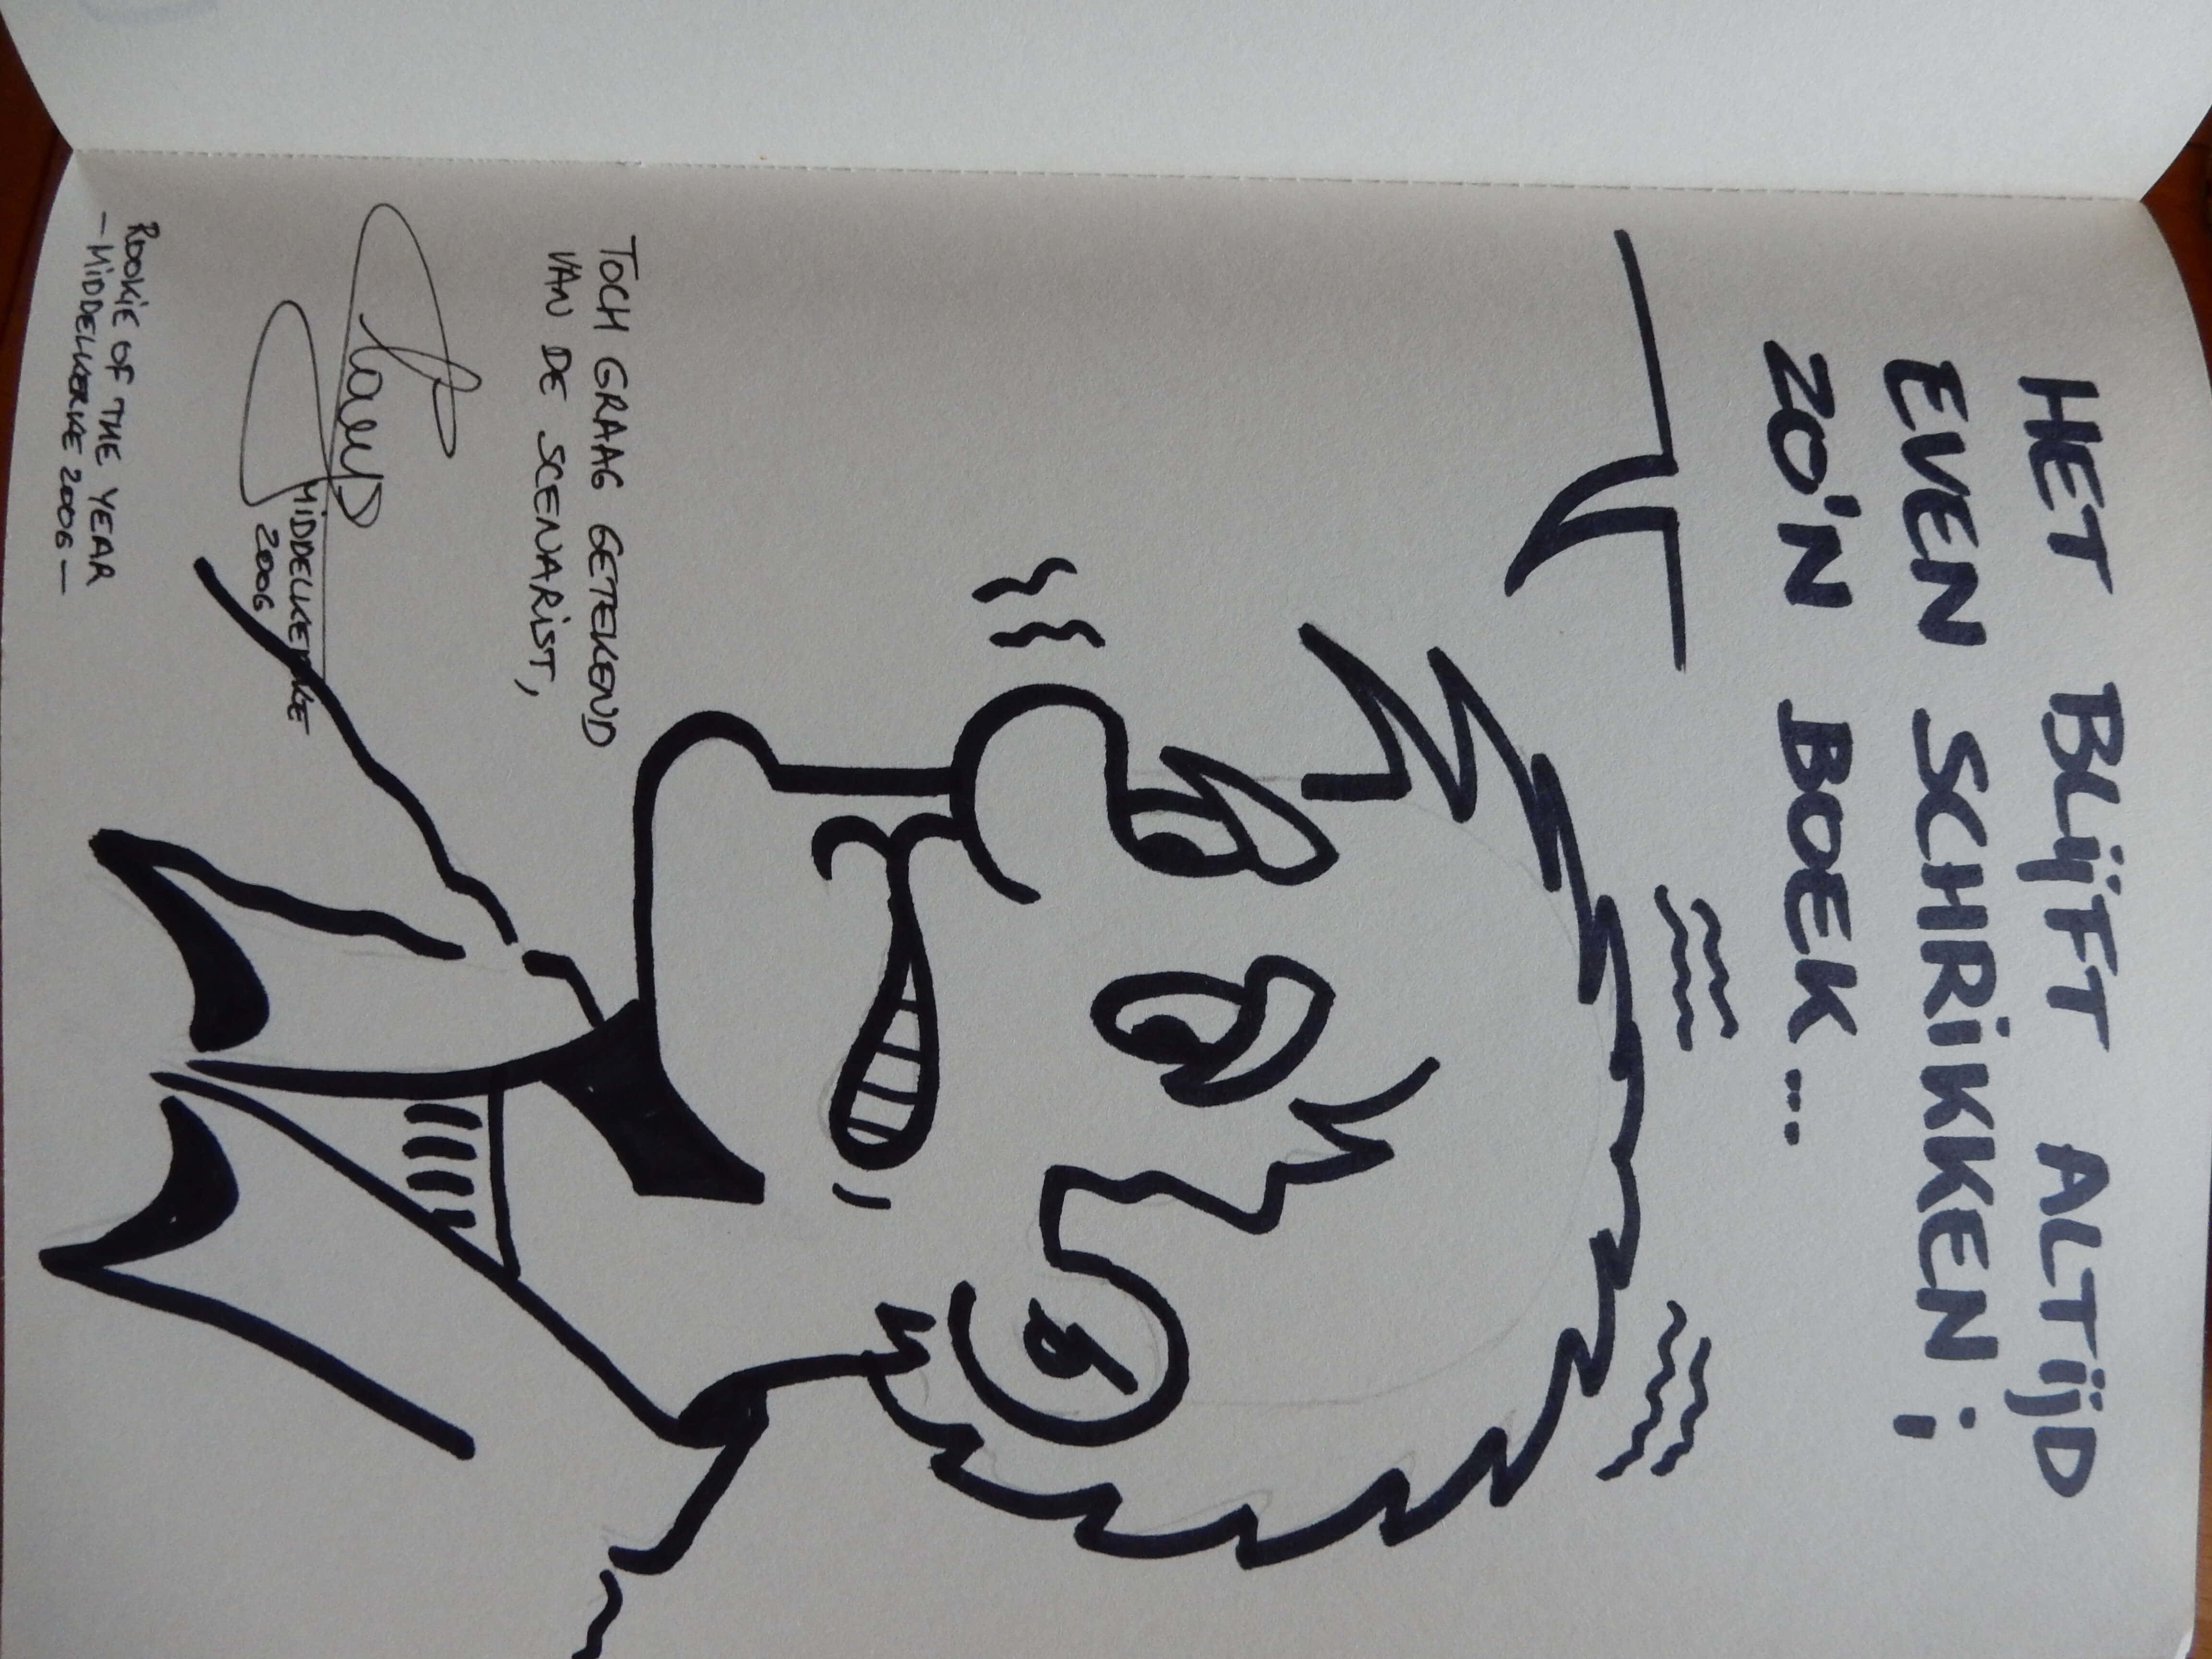 HET BLijFT ALTijD
EVEN SCHRiKKEN ;
ZO'N BOEK...
TOCH GRAAG GETEKEND
VAN DE SCENARiST,
Claeys
MiDDELKERKE
2006
ROOKiE OF THE YEAR
- MiDDELKERKE 2006 -